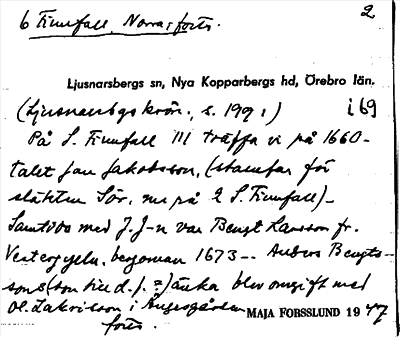 6 Finnfall, Norra, forts. 2
Ljusnarsbergs sn, Nya Kopparbergs hd, Örebro län.
(Ljusnarsbgs krön., s. 199,) i 69
På S. Finnfall III träffa vi på 1660-
talet Jan Jakobsson, (stamfar för
släkten Sör, nu på 2 S. Finnfall).
Samtidis med J. J-n var Bengt Larsson fr.
Vestergyeln, bergsman 1673-- Anders Bengts-
sons (son till d. f. ?) änka blev omgift med
Ol. Larsson i Ängesgården
forts.
MAJA FORSSLUND 1947